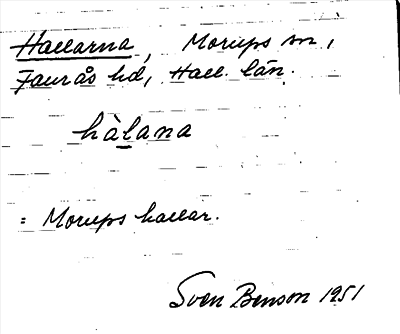 Hallarna, Morups sn,
Faurås hd, Hall. län.
hàlana
= Morups hallar.
Sven Benson 1951